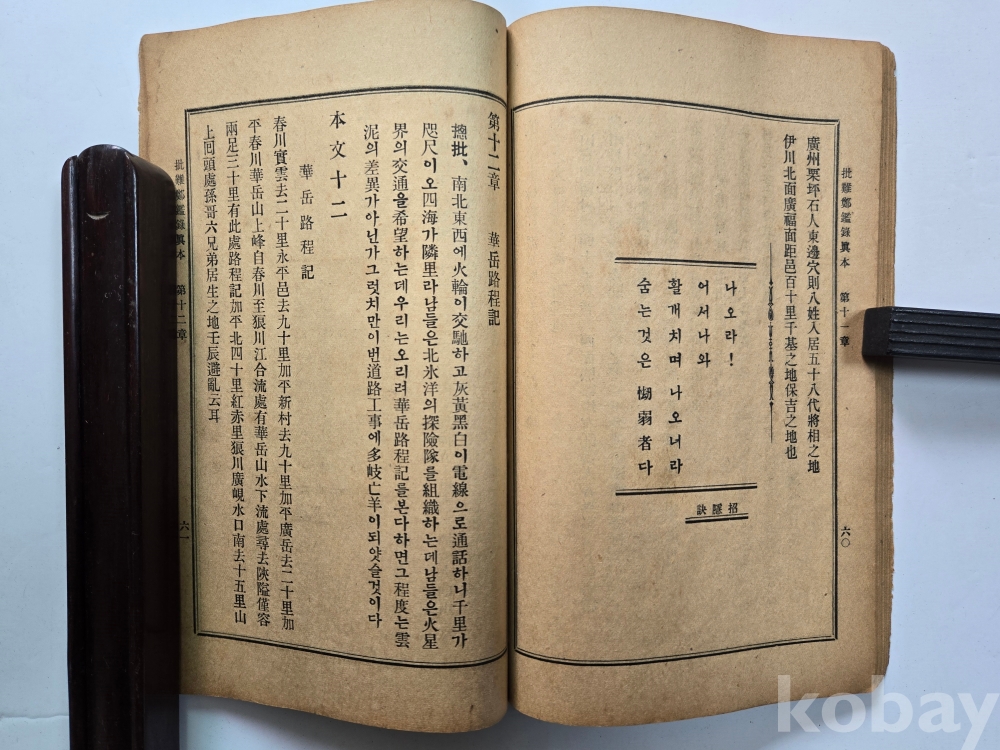 批難鄭鑑錄眞本 第十一章
廣州栗坪石人東邊穴則八姓入居五十八代將相之地
伊川北面廣福面距邑百十里千基之地保吉之地也
나오라!
어서나와
활개치며 나오너라
숨는것은 怮弱者다
招隱訣
六〇
第十二章 華岳路程記
摠批、南北東西에火輪이交馳하고灰黃黑白이電線으로通話하니千里가
咫尺이오四海가隣里라남들은北氷洋의探險隊를組織하는데남들은火星
界의交通을希望하는데우리는오리려華岳路程記를본다하면그程度는雲
泥의差異가아닌가그럿치만이번道路工事에多岐亡羊이되얏슬것이다
本文十二
華岳路程記
春川實雲去二十里永平邑去九十里加平新村去九十里加平廣岳去二十里加
平春川華岳山上峰自春川至狼川江合流處有華岳山水下流處尋去陜隘僅容
兩足三十里有此處路程記加平北四十里紅赤里狼川廣峴水口南去十五里山
上回頭處孫哥六兄弟居生之地壬辰避亂云耳
批難鄭鑑錄眞本 第十二章
六一
kobay